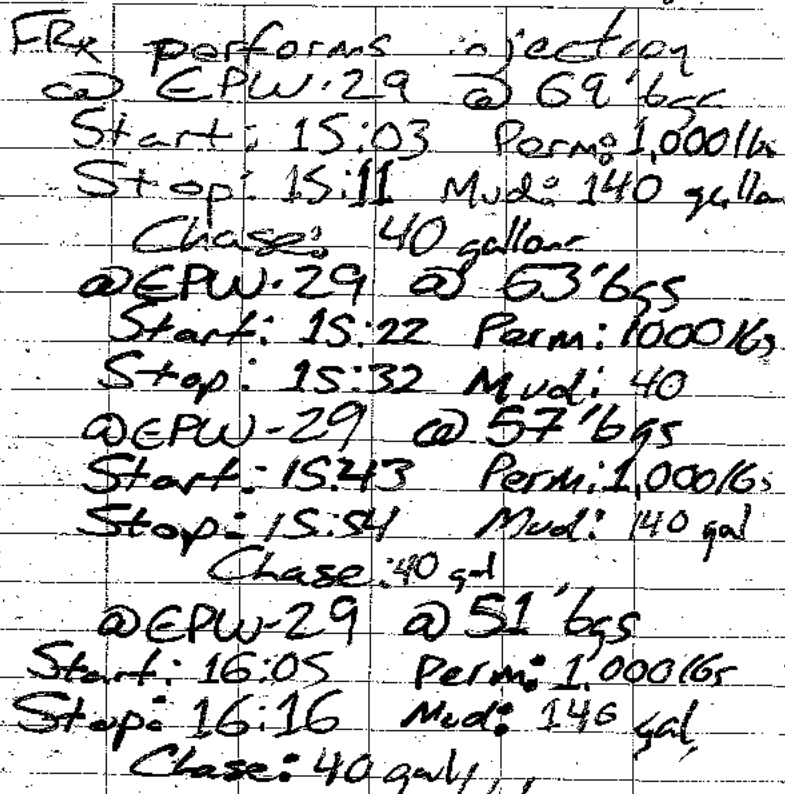 FRx performs injection
@ EPW-29 @ 69'bgs
Start: 15:03 Perm: 1,000lbs
Stop: 15:11 Mud: 140 gallon
Chase: 40 gallons
@EPW-29 @ 63'bgs
Start: 15:22 Perm: 1000lbs
Stop: 15:32 Mud: 40
@EPW-29 @ 57'bgs
Start: 15:43 Perm: 1,000lbs
Stop: 15:54 Mud: 140 gal
Chase: 40 gal
@EPW-29 @ 51'bgs
Start: 16:05 Perm: 1,000lbs
Stop: 16:16 Mud: 146 gal
Chase: 40